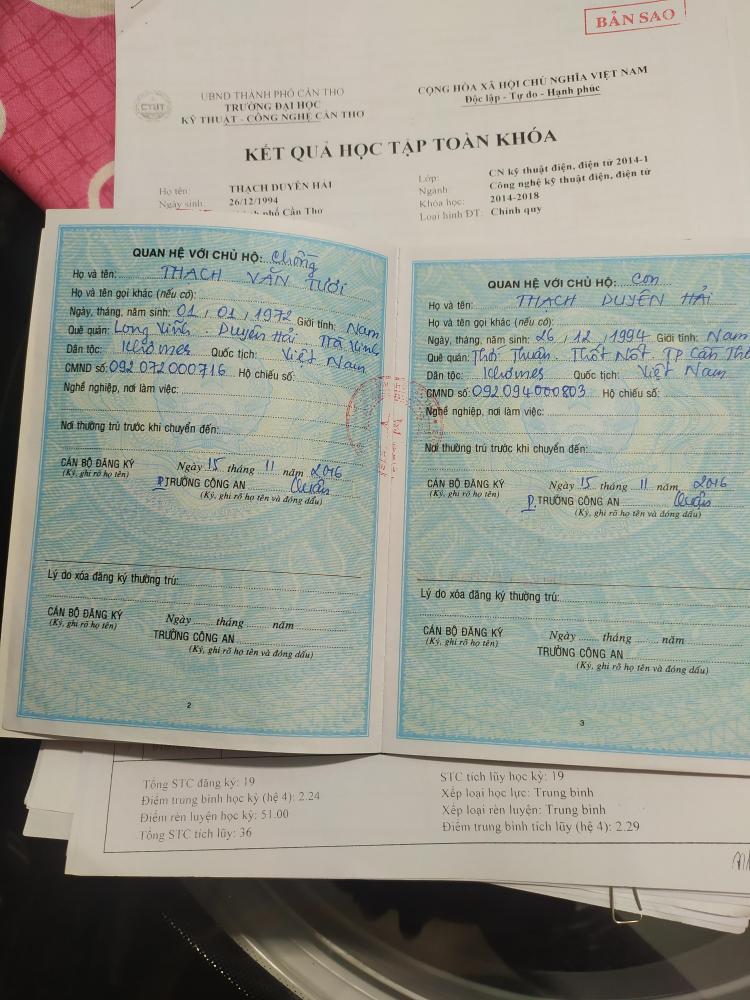 BẢN SAO
UBND THÀNH PHỐ CẦN THƠ
TRƯỜNG ĐẠI HỌC
KỸ THUẬT - CÔNG NGHỆ CẦN THƠ
CỘNG HÒA XÃ HỘI CHỦ NGHĨA VIỆT NAM
Độc lập - Tự do - Hạnh phúc
KẾT QUẢ HỌC TẬP TOÀN KHÓA
Họ tên: THẠCH DUYÊN HẢI
Ngày sinh: 26/12/1994
phố Cần Thơ
Lớp: CN kỹ thuật điện, điện tử 2014-1
Ngành: Công nghệ kỹ thuật điện, điện tử
Khóa học: 2014-2018
Loại hình ĐT: Chính quy
QUAN HỆ VỚI CHỦ HỘ: Chồng
Họ và tên: THẠCH VĂN TƯƠI
Họ và tên gọi khác (nếu có):
Ngày, tháng, năm sinh: 01 / 01 / 1972 Giới tính: Nam
Quê quán: Long Vĩnh - Duyên Hải Trà Vinh
Dân tộc: Khơmer Quốc tịch: Việt Nam
CMND số: 092072000716 Hộ chiếu số:
Nghề nghiệp, nơi làm việc:
Nơi thường trú trước khi chuyển đến:
CÁN BỘ ĐĂNG KÝ Ngày 15 tháng 11 năm 2016
(Ký, ghi rõ họ tên) P. TRƯỞNG CÔNG AN Quận
(Ký, ghi rõ họ tên và đóng dấu)
Lý do xóa đăng ký thường trú:
CÁN BỘ ĐĂNG KÝ Ngày tháng năm
(Ký, ghi rõ họ tên) TRƯỞNG CÔNG AN
(Ký, ghi rõ họ tên và đóng dấu)
2
QUAN HỆ VỚI CHỦ HỘ: Con
Họ và tên: THẠCH DUYÊN HẢI
Họ và tên gọi khác (nếu có):
Ngày, tháng, năm sinh: 26 / 12 / 1994 Giới tính: Nam
Quê quán: Thới Thuận - Thốt Nốt TP Cần Thơ
Dân tộc: Khơmer Quốc tịch: Việt Nam
CMND số: 092094000803 Hộ chiếu số:
Nghề nghiệp, nơi làm việc:
Nơi thường trú trước khi chuyển đến:
CÁN BỘ ĐĂNG KÝ Ngày 15 tháng 11 năm 2016
(Ký, ghi rõ họ tên) P. TRƯỞNG CÔNG AN Quận
(Ký, ghi rõ họ tên và đóng dấu)
Lý do xóa đăng ký thường trú:
CÁN BỘ ĐĂNG KÝ Ngày tháng năm
(Ký, ghi rõ họ tên) TRƯỞNG CÔNG AN
(Ký, ghi rõ họ tên và đóng dấu)
3
Tổng STC đăng ký: 19
Điểm trung bình học kỳ (hệ 4): 2.24
Điểm rèn luyện học kỳ: 51.00
Tổng STC tích lũy: 36
STC tích lũy học kỳ: 19
Xếp loại học lực: Trung bình
Xếp loại rèn luyện: Trung bình
Điểm trung bình tích lũy (hệ 4): 2.29